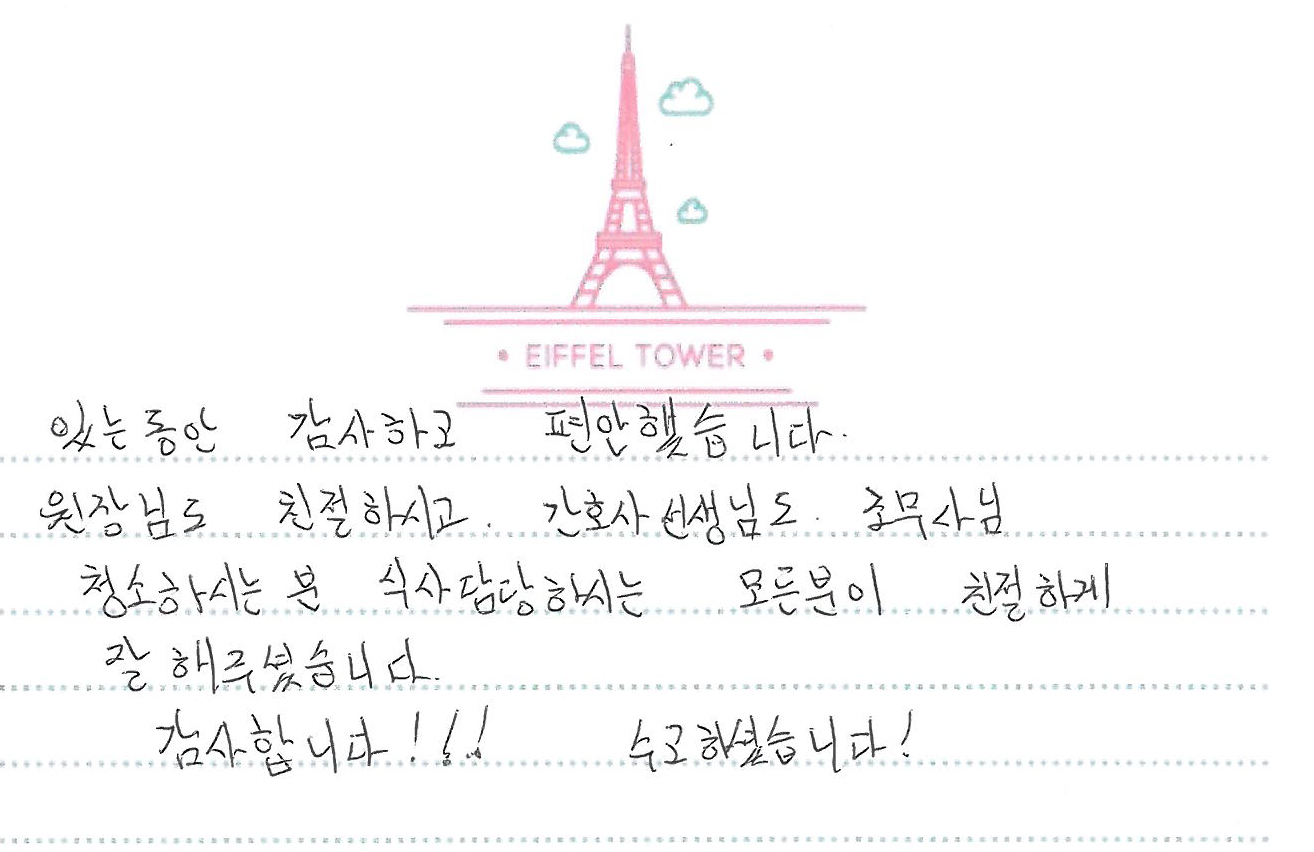 • EIFFEL TOWER •
있는동안 감사하고 편안했습니다.
원장님도 친절하시고. 간호사선생님도. 조무사님
청소하시는 분 식사담당하시는 모든분이 친절하게
잘 해주셨습니다.
감사합니다!!! 수고하셨습니다!